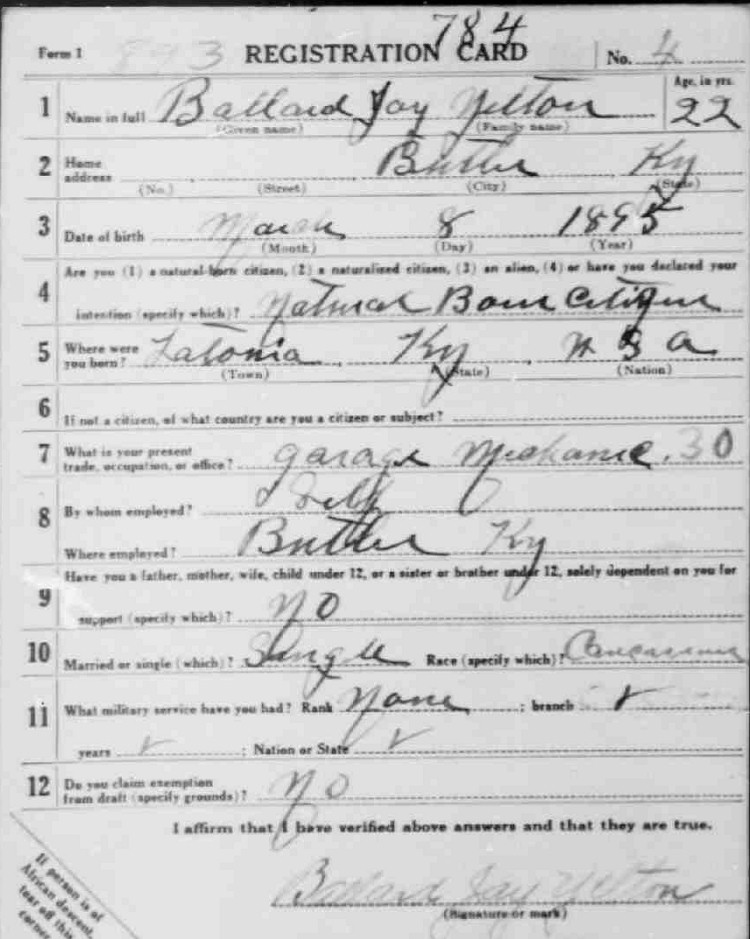 784
Form 1 893 REGISTRATION CARD No. 4
1 Name in full Ballard Jay Yelton Age, in yrs. 22
(Given name) (Family name)
2 Home address Butler Ky
(No.) (Street) (City) (State)
3 Date of birth March 8 1895
(Month) (Day) (Year)
Are you (1) a natural-born citizen, (2) a naturalized citizen, (3) an alien, (4) or have you declared your
4 intention (specify which)? Natural Born Citizen
5 Where were you born? Latonia, Ky, U S A
(Town) (State) (Nation)
6 If not a citizen, of what country are you a citizen or subject?
7 What is your present trade, occupation, or office? garage Mechanic. 30
8 By whom employed? Self
Where employed? Butler Ky
Have you a father, mother, wife, child under 12, or a sister or brother under 12, solely dependent on you for
9 support (specify which)? NO
10 Married or single (which)? Single Race (specify which)? Caucasian
11 What military service have you had? Rank None ; branch
years ; Nation or State
12 Do you claim exemption from draft (specify grounds)? NO
I affirm that I have verified above answers and that they are true.
Ballard Jay Yelton
(Signature or mark)
If person is of
African descent,
tear off this
corner